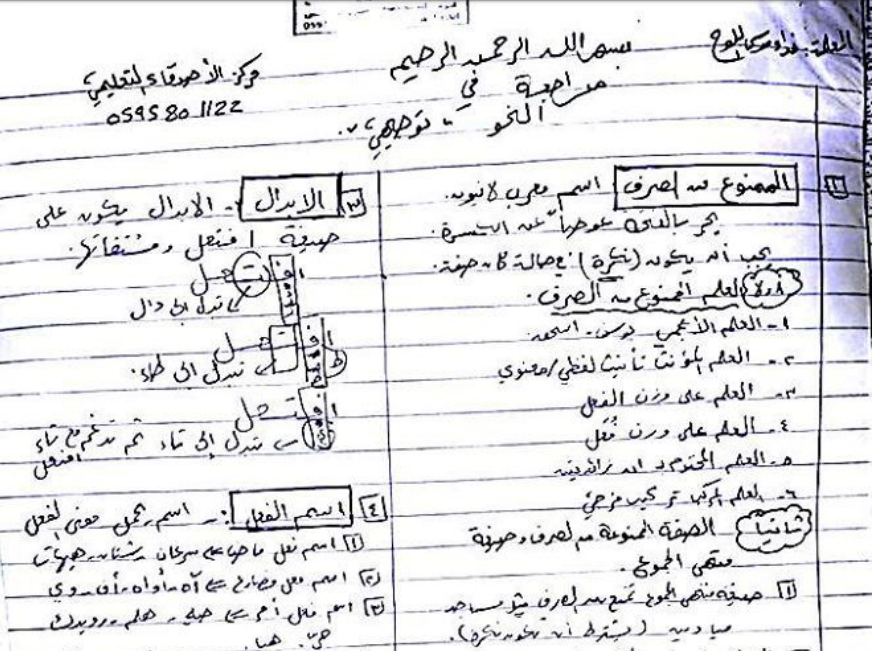 المعلمة: فداء موسى اللوح
بسم الله الرحمن الرحيم
مراجعة في
النحو "توجيهي"
مركز الأصدقاء التعليمي
0595801122
١ الممنوع من الصرف اسم معرب لا ينون.
يجر بالفتحة عوضاً عن الكسرة.
يجب أن يكون (نكرة) في حالة كان صفة.
أولاً العلم الممنوع من الصرف.
١- العلم الأعجمي
٢- العلم المؤنث تأنيث لفظي/معنوي
٣- العلم على وزن الفعل
٤- العلم على وزن فُعَل
٥- العلم المختوم بـ ان زائدتين
٦- العلم المركب تركيب مزجي
ثانياً الصفة الممنوعة من الصرف وصيغة
منتهى الجموع.
١ صيغة منتهى الجموع تمنع من الصرف مثل مساجد
ميادين (يشترط أن تكون نكرة).
٣ الإبدال - الإبدال يكون على
صيغة افتعل ومشتقاتها.
ا ف ت عل
تبدل إلى دال
ا ف ت عل
ط
تبدل إلى طاء.
ا ف ت عل
تبدل إلى تاء ثم تدغم مع تاء
افتعل
٤ اسم الفعل :- اسم يحمل معنى الفعل
١ اسم فعل ماضٍ سرعان - شتان - هيهات
٢ اسم فعل مضارع آه - أواه - أف - وي
٣ اسم فعل أمر صه - هلم - رويدك
حيّ. هيا.